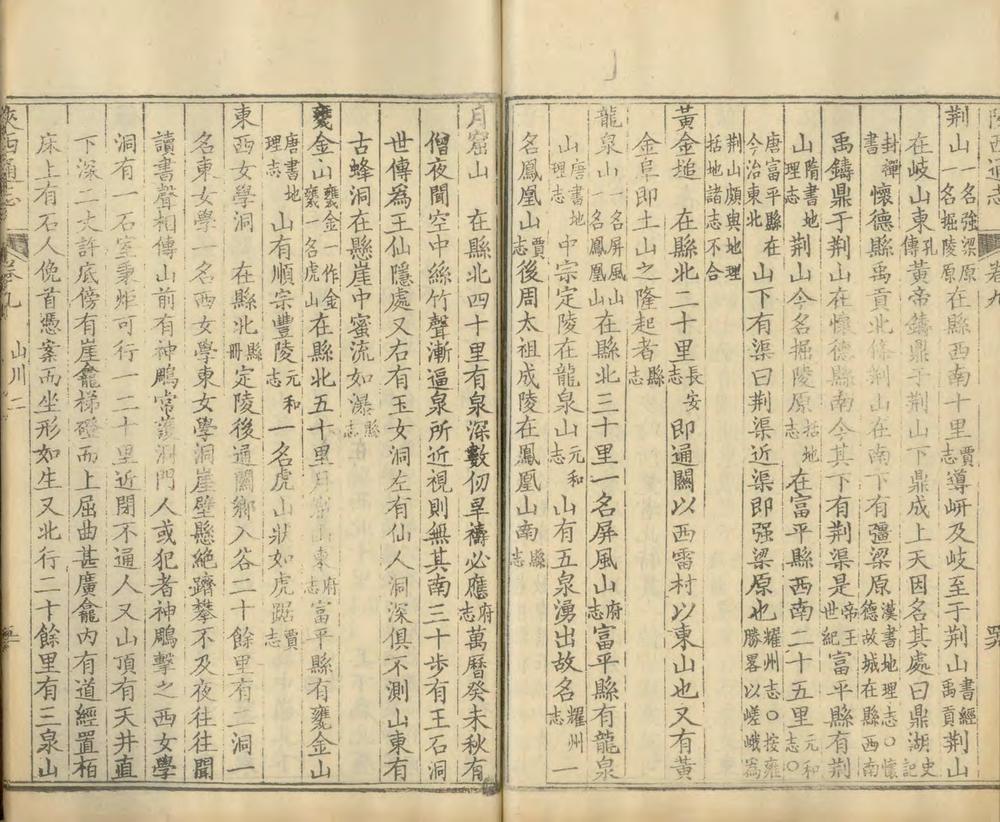 陝西通志 卷九
荆山 一名強梁原一名掘陵原在縣西南十里賈志導岍及岐至于荆山書經禹貢荆山
在岐山東孔傳黃帝鑄鼎于荆山下鼎成上天因名其處曰鼎湖史記
封禪書懷德縣禹貢北條荆山在南下有彊梁原漢書地理志○懷德故城在縣西南
禹鑄鼎于荆山在懷德縣南今其下有荆渠是帝王世紀富平縣有荆
山隋書地理志荆山今名掘陵原括地志在富平縣西南二十五里元和志○
唐富平縣在今治東北山下有渠曰荆渠近渠即强梁原也耀州志○按雍勝畧以嵯峨為
荆山頗與地理括地諸志不合
黃金𡑞 在縣北二十里長安志即通關以西雷村以東山也又有黃
金阜即土山之隆起者縣志
龍泉山 一名屏風山一名鳳凰山在縣北三十里一名屏風山府志富平縣有龍泉
山唐書地理志中宗定陵在龍泉山元和志山有五泉湧出故名耀州志一
名鳳凰山賈志後周太祖成陵在鳳凰山南縣志
月窟山 在縣北四十里有泉深數仞旱禱必應府志萬曆癸未秋有
僧夜聞空中絲竹聲漸逼泉所近視則無其南三十步有王石洞
世傳為王仙隱處又右有玉女洞左有仙人洞深俱不測山東有
古蜂洞在懸崖中蜜流如瀑縣志
甕金山甕金一作金甕一名虎山在縣北五十里月窟山東府志富平縣有甕金山
唐書地理志山有順宗豐陵元和志一名虎山狀如虎踞賈志
東西女學洞 在縣北縣冊定陵後通關鄉入谷二十餘里有二洞一
名東女學一名西女學東女學洞崖壁懸絕躋攀不及夜往往聞
讀書聲相傳山前有神鵰常護洞門人或犯者神鵰擊之西女學
洞有一石室秉炬可行一二十里近閉不通人又山頂有天井直
下深二丈許底傍有崖龕梯磴而上屈曲甚廣龕內有道經置栢
床上有石人俛首憑案而坐形如生又北行二十餘里有三泉山
陝西通志 卷九 山川二